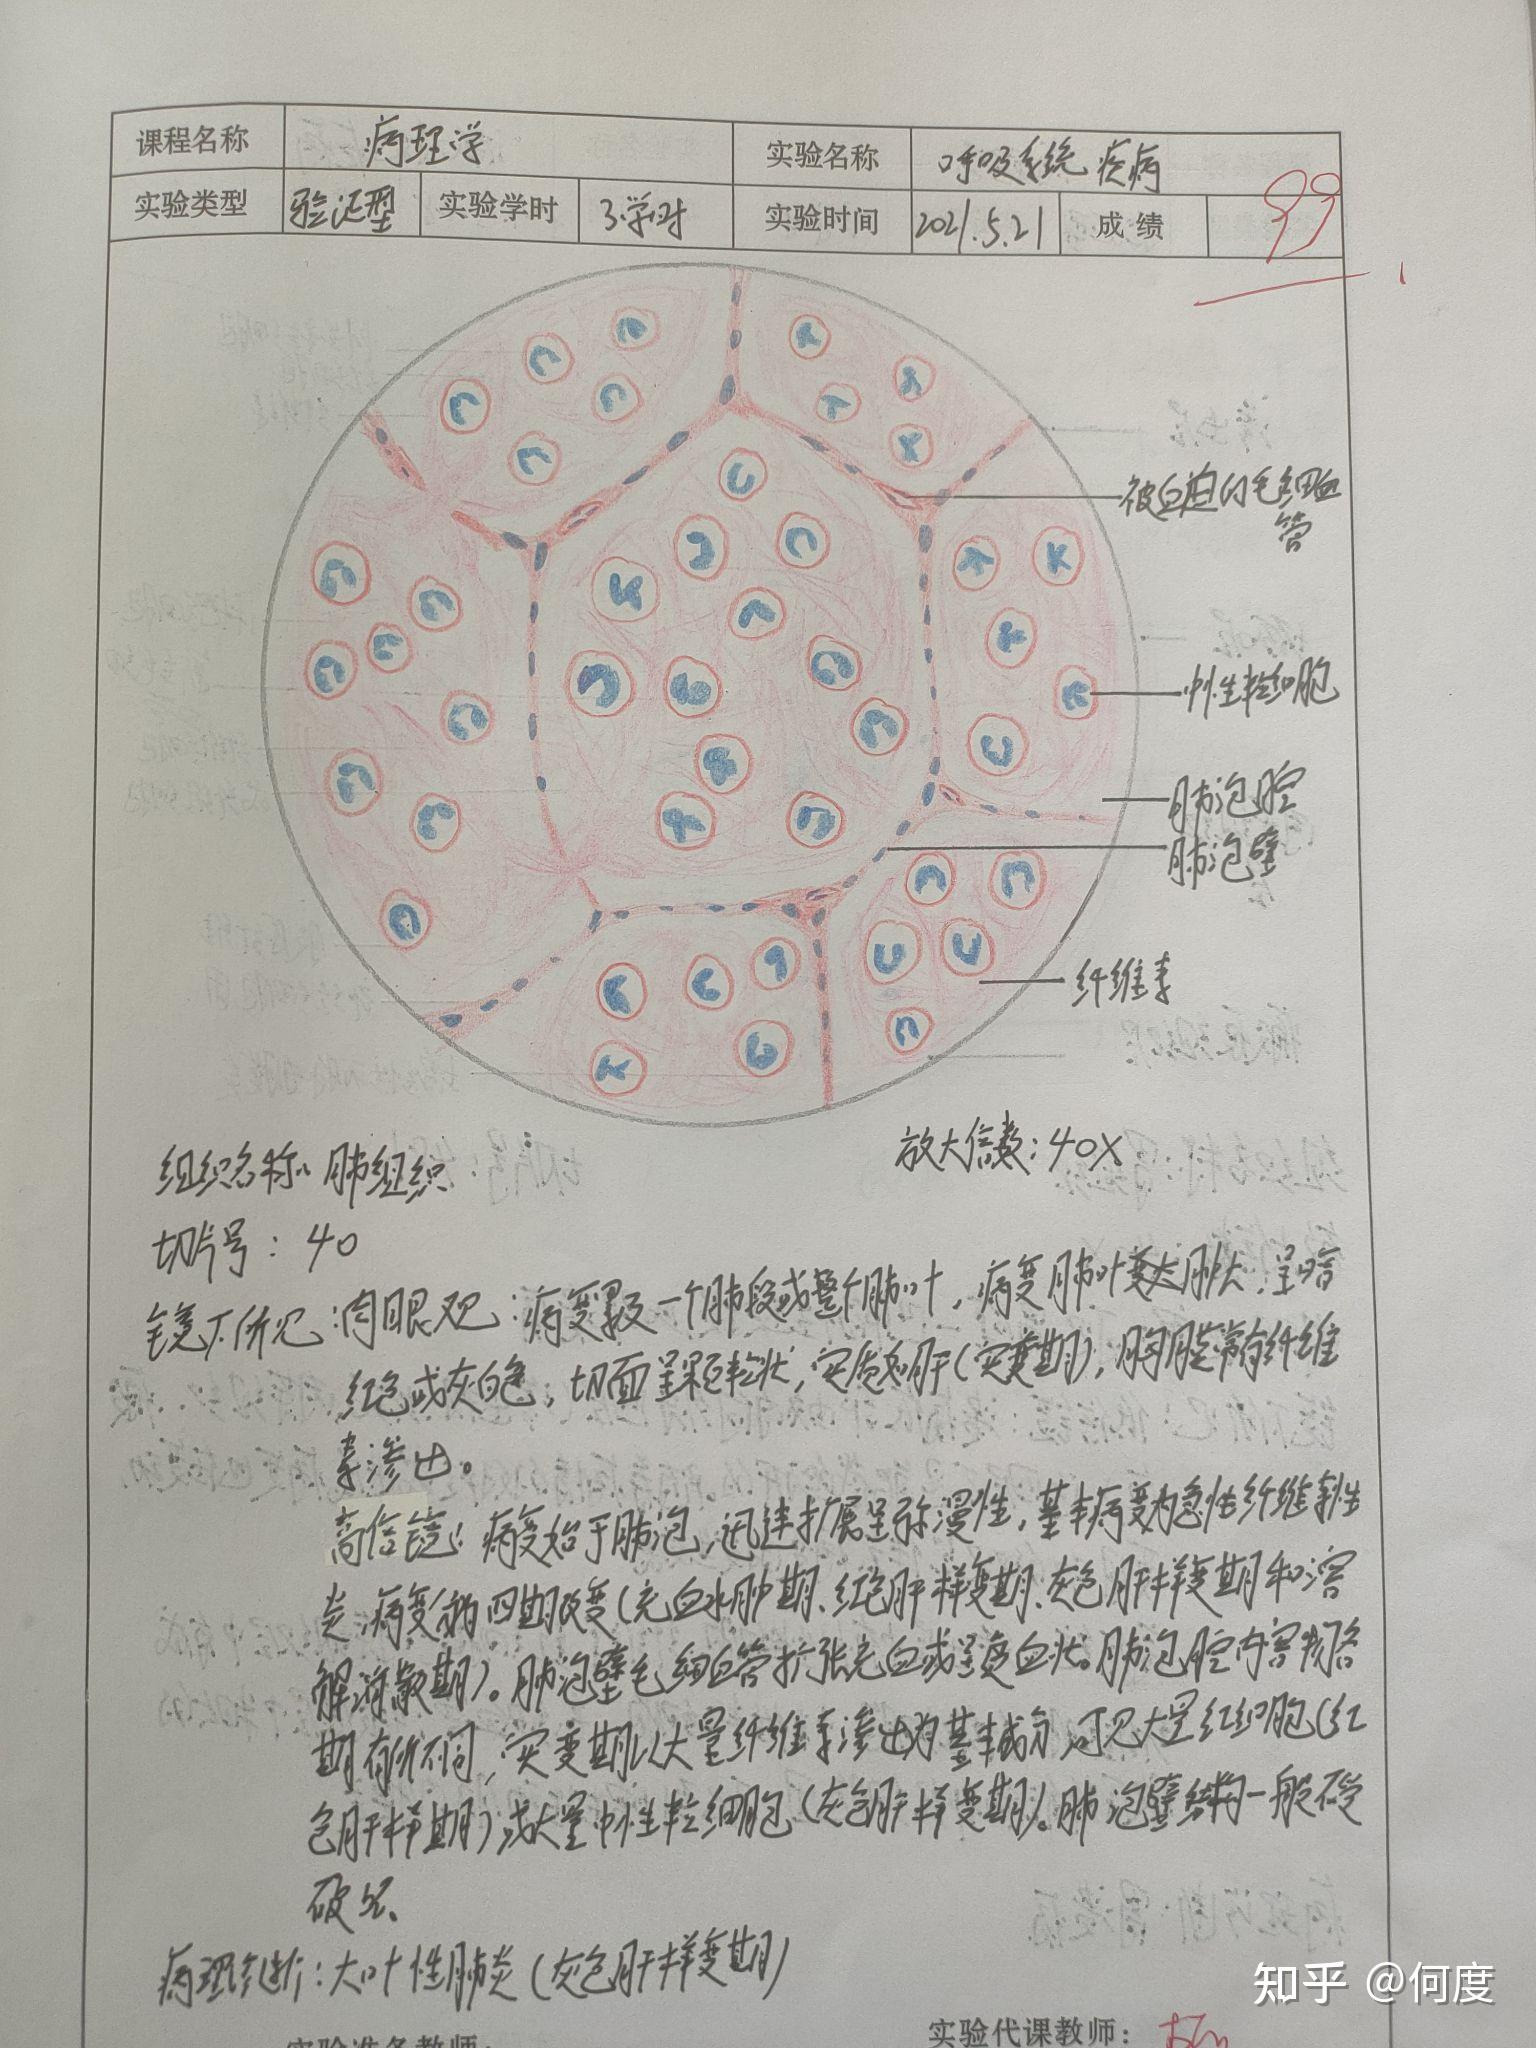 课程名称 病理学 实验名称 呼吸系统疾病
实验类型 验证型 实验学时 3学时 实验时间 2021.5.21 成绩 99
被包埋的毛细血
管
中性粒细胞
肺泡腔
肺泡壁
纤维素
放大倍数:40X
组织名称:肺组织
切片号:40
镜下所见:肉眼观:病变累及一个肺段或整个肺叶,病变肺叶肿大,呈暗
红色或灰白色,切面呈颗粒状,实质如肝(实变期),胸膜常有纤维
素渗出。
高倍镜:病变始于肺泡,迅速扩展呈弥漫性,基本病变为急性纤维素性
炎,病变分为四期改变(充血水肿期、红色肝样变期、灰色肝样变期和溶
解消散期)。肺泡壁毛细血管扩张充血或呈贫血状。肺泡腔内容物各
期有所不同,实变期以大量纤维素渗出为基本成分,可见大量红细胞(红
色肝样期)或大量中性粒细胞(灰色肝样变期)。肺泡壁结构一般不受
破坏、
病理诊断:大叶性肺炎(灰色肝样变期)
实验准备教师:
实验代课教师:
知乎 @何度